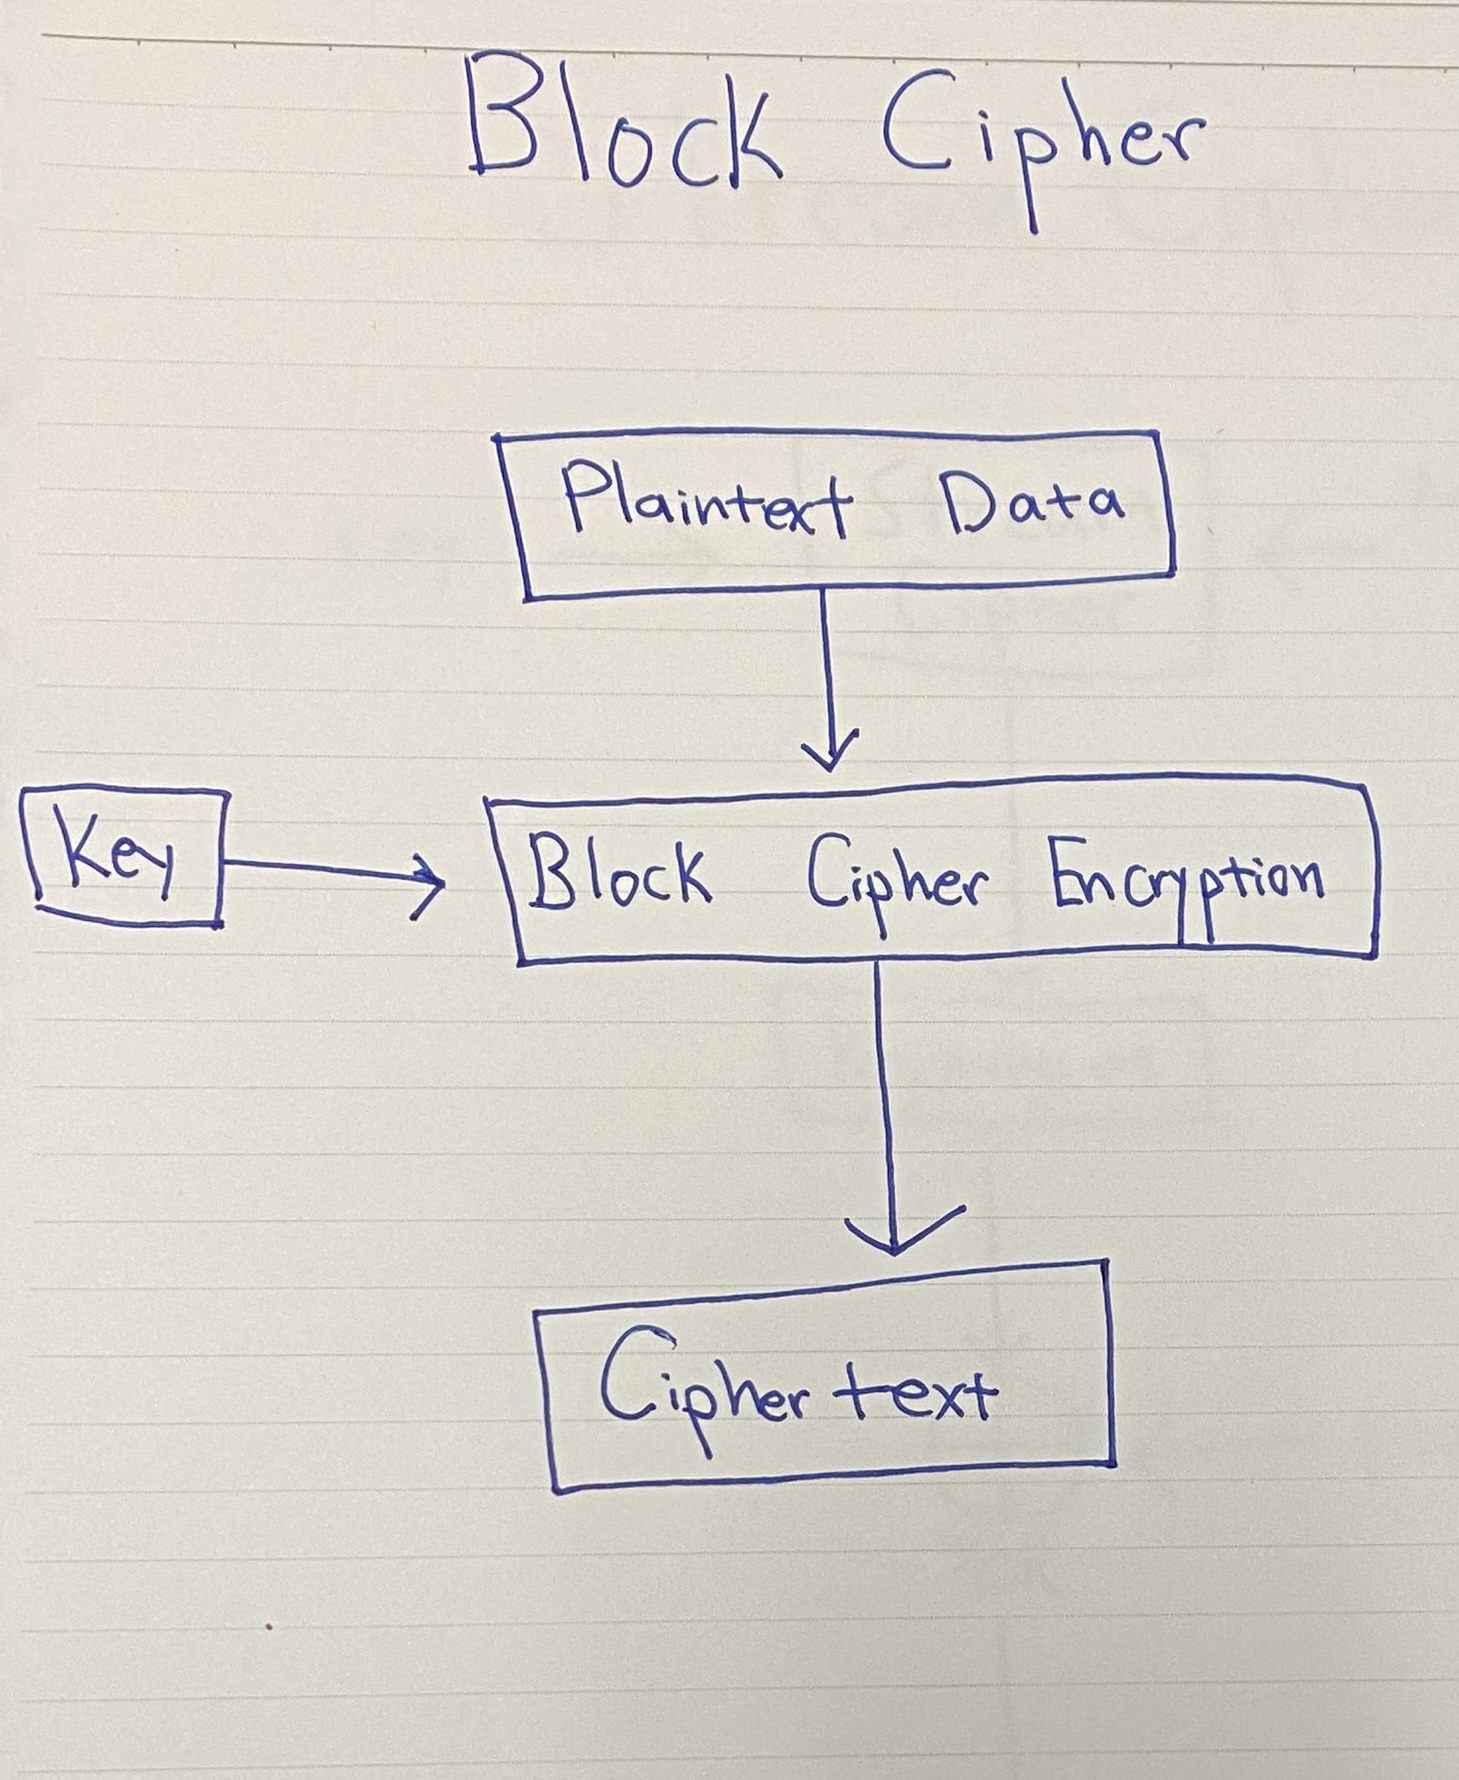 Block Cipher
Plaintext Data
Key
Block Cipher Encryption
Ciphertext